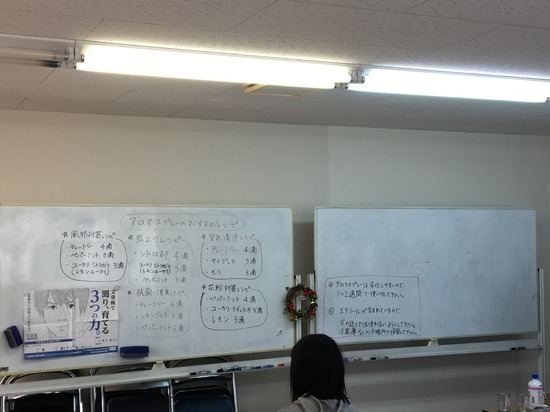 アロマスプレーのおすすめレシピ
☆風邪対策レシピ
・ティートリー 4滴
・ペパーミント 3滴
・ユーカリ シトリオドラ 3滴
(レモンユーカリ)
☆虫よけレシピ
・シトロネラ 4滴
・ユーカリ シトリオドラ 3滴
(レモンユーカリ)
・ペパーミント 3滴
☆抗菌 消臭レシピ
・ティートリー 4滴
・レモングラス 3滴
・ペパーミント 3滴
☆空気清浄レシピ
・ティートリー 4滴
・サイプレス 3滴
・モミ 3滴
☆花粉対策レシピ
・ペパーミント 4滴
・ユーカリ ラディアータ 3滴
・レモン 3滴
測り、育てる
3つの力。
◎アロマスプレーは劣化しやすいので
1〜2週間で使い切って下さい。
◎エタノールが含まれているので
火の近くでは使わないようにして下さい。
冷蔵庫などの冷暗所で保管して下さい。